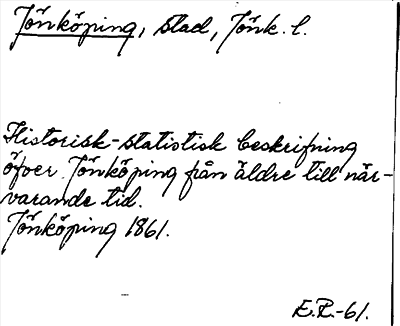 Jönköping, stad, Jönk. l.
Historisk-statistisk beskrifning
öfver Jönköping från äldre till när-
varande tid.
Jönköping 1861.
E.R.-61.